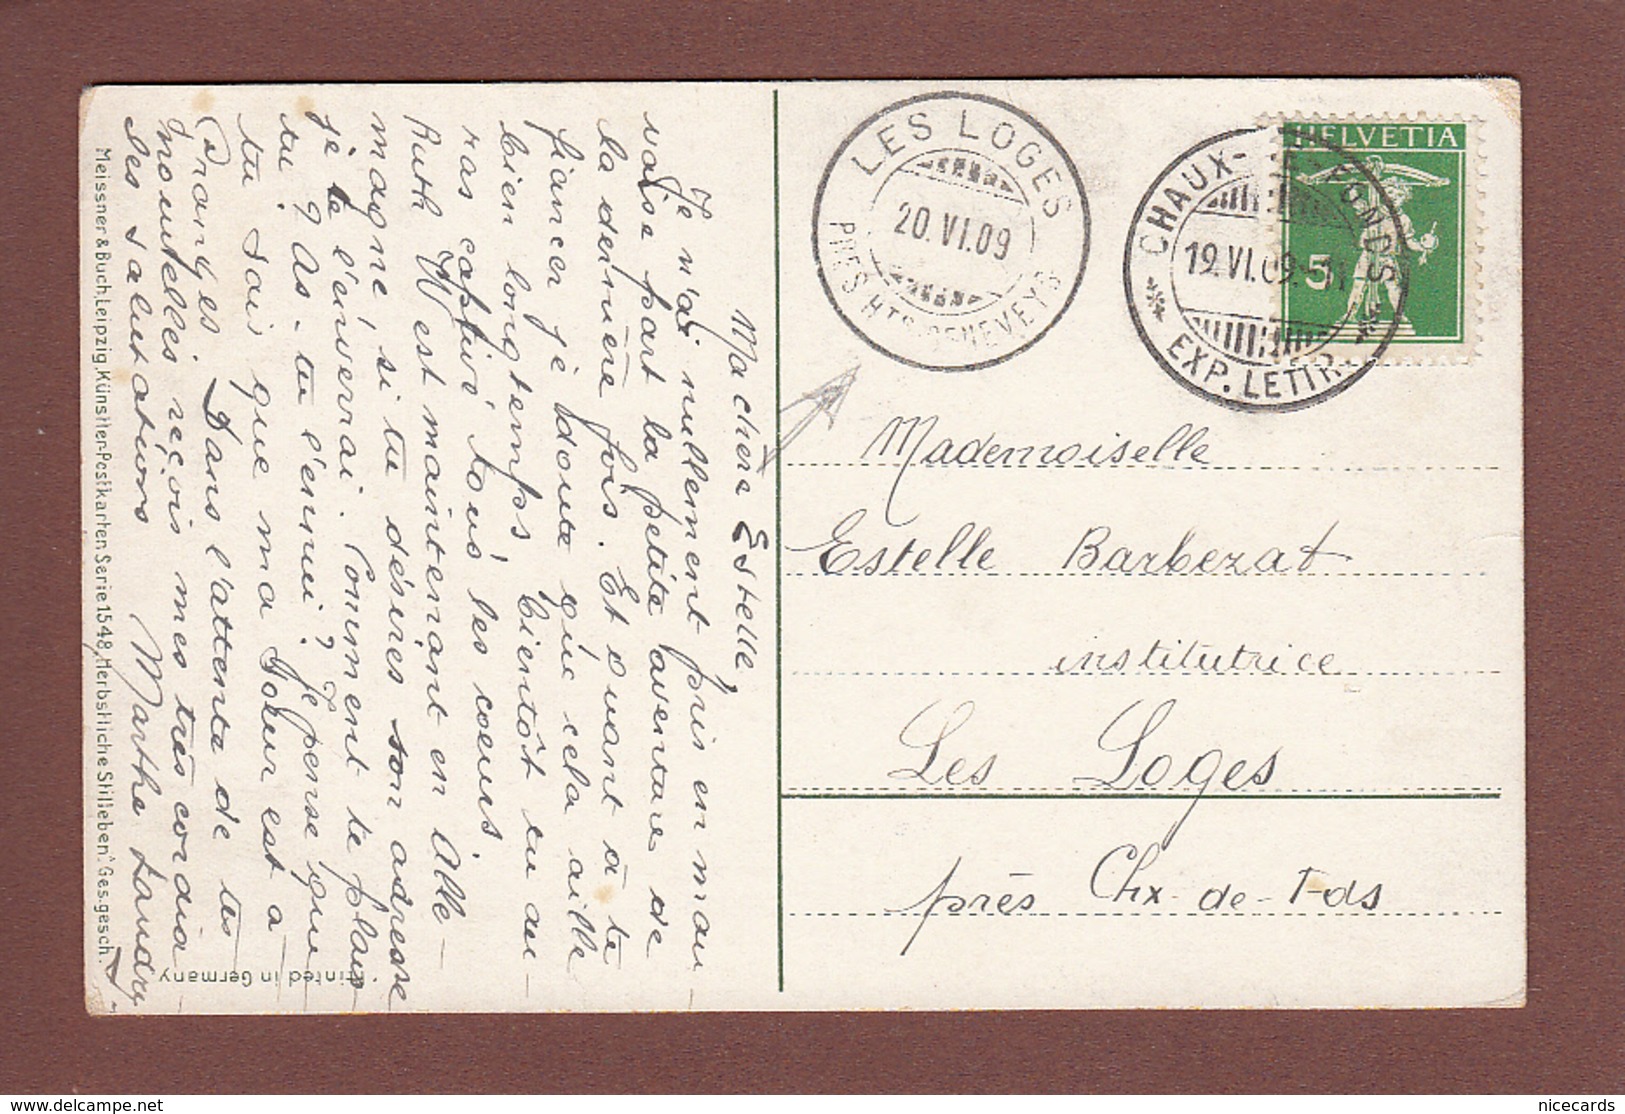 Ma chère Estelle,
Je n'ai nullement pris en mau
vaise part la petite aventure de
la dernière fois. Et quant à te
fiancer je doute que cela aille
bien longtemps, bientôt tu au-
ras captivé tous les coeurs.
Ruth W est maintenant en Alle-
magne, si tu désires son adresse
je te l'enverrai. Comment te plais
tu? As-tu l'ennui? Je pense que
tu sais que ma soeur est à
Dans l'attente de tes
nouvelles reçois mes très cordia
les salutations Marthe Landry
Meissner & Buch, Leipzig, Künstler-Postkarten Serie 1548 „Herbstliche Stilleben". Ges. gesch.
Printed in Germany
LES LOGES
20.VI.09
PRÈS HTS GENEVEYS
CHAUX-DE-FONDS
19.VI.09
EXP. LETTR.
HELVETIA
5
Mademoiselle
Estelle Barbezat
institutrice
Les Loges
près Chx-de-Fds
nicecards
delcampe.net